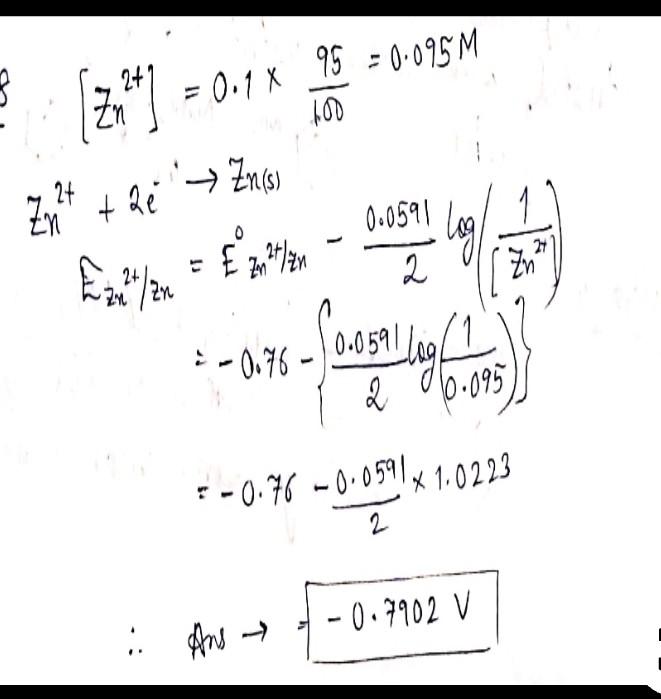 8 [Zn²⁺] = 0.1 × 95/100 = 0.095 M
Zn²⁺ + 2e⁻ → Zn(s)
E Zn²⁺/Zn = E⁰ Zn²⁺/Zn − 0.0591/2 log(1/[Zn²⁺])
= −0.76 − {0.0591/2 log(1/0.095)}
= −0.76 − 0.0591/2 × 1.0223
∴ Ans → = −0.7902 V